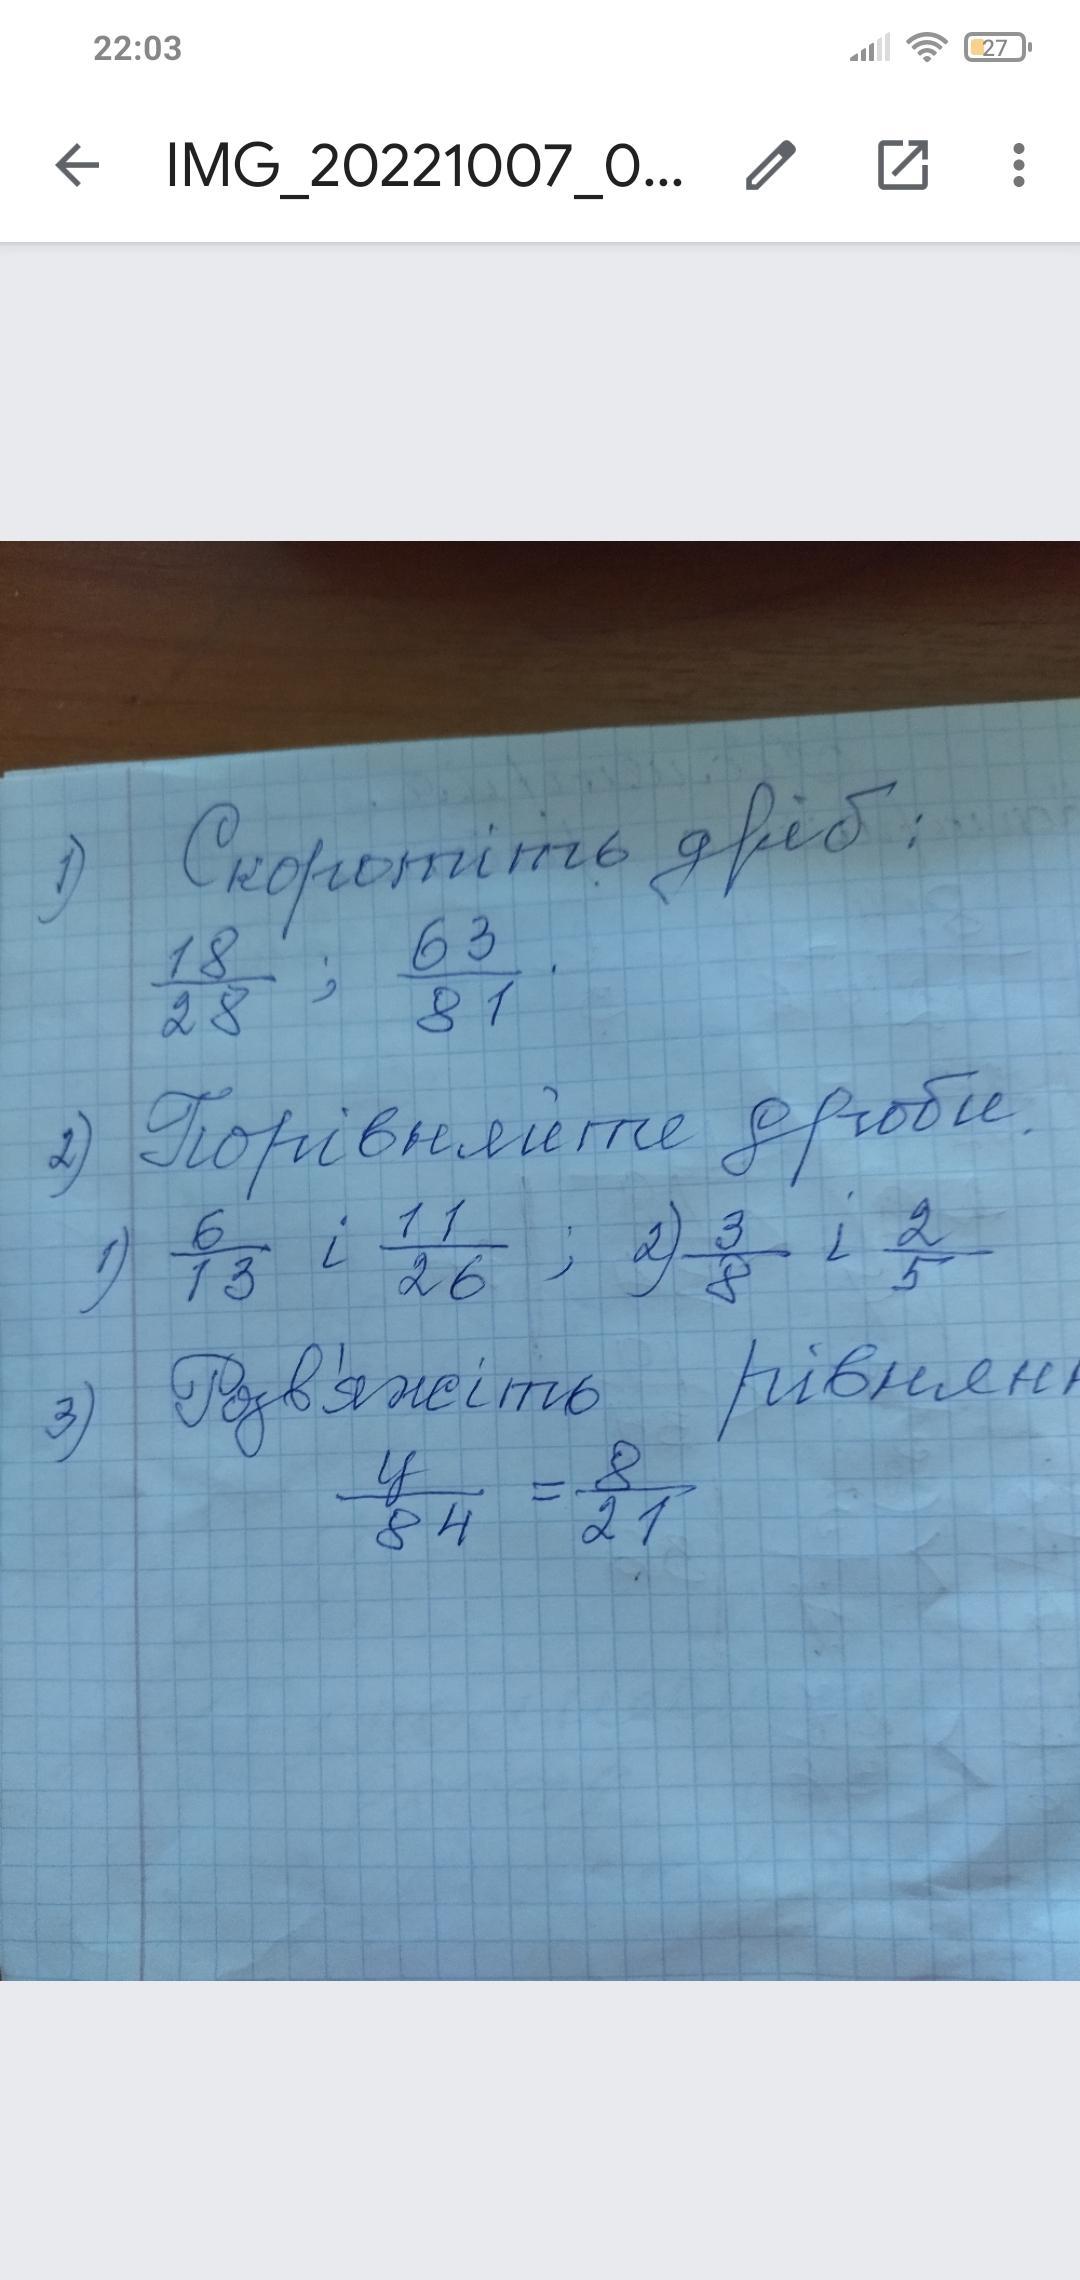 22:03
27
IMG_20221007_0...
1) Скоротіть дріб:
18/28 ; 63/81 .
2) Порівняйте дроби.
1) 6/13 і 11/26 ; 2) 3/8 і 2/5
3) Розв'яжіть рівнянн
y/84 = 8/21